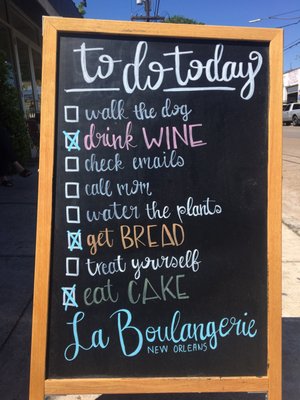 to do today
walk the dog
drink WINE
check emails
call mom
water the plants
get BREAD
treat yourself
eat CAKE
La Boulangerie
NEW ORLEANS